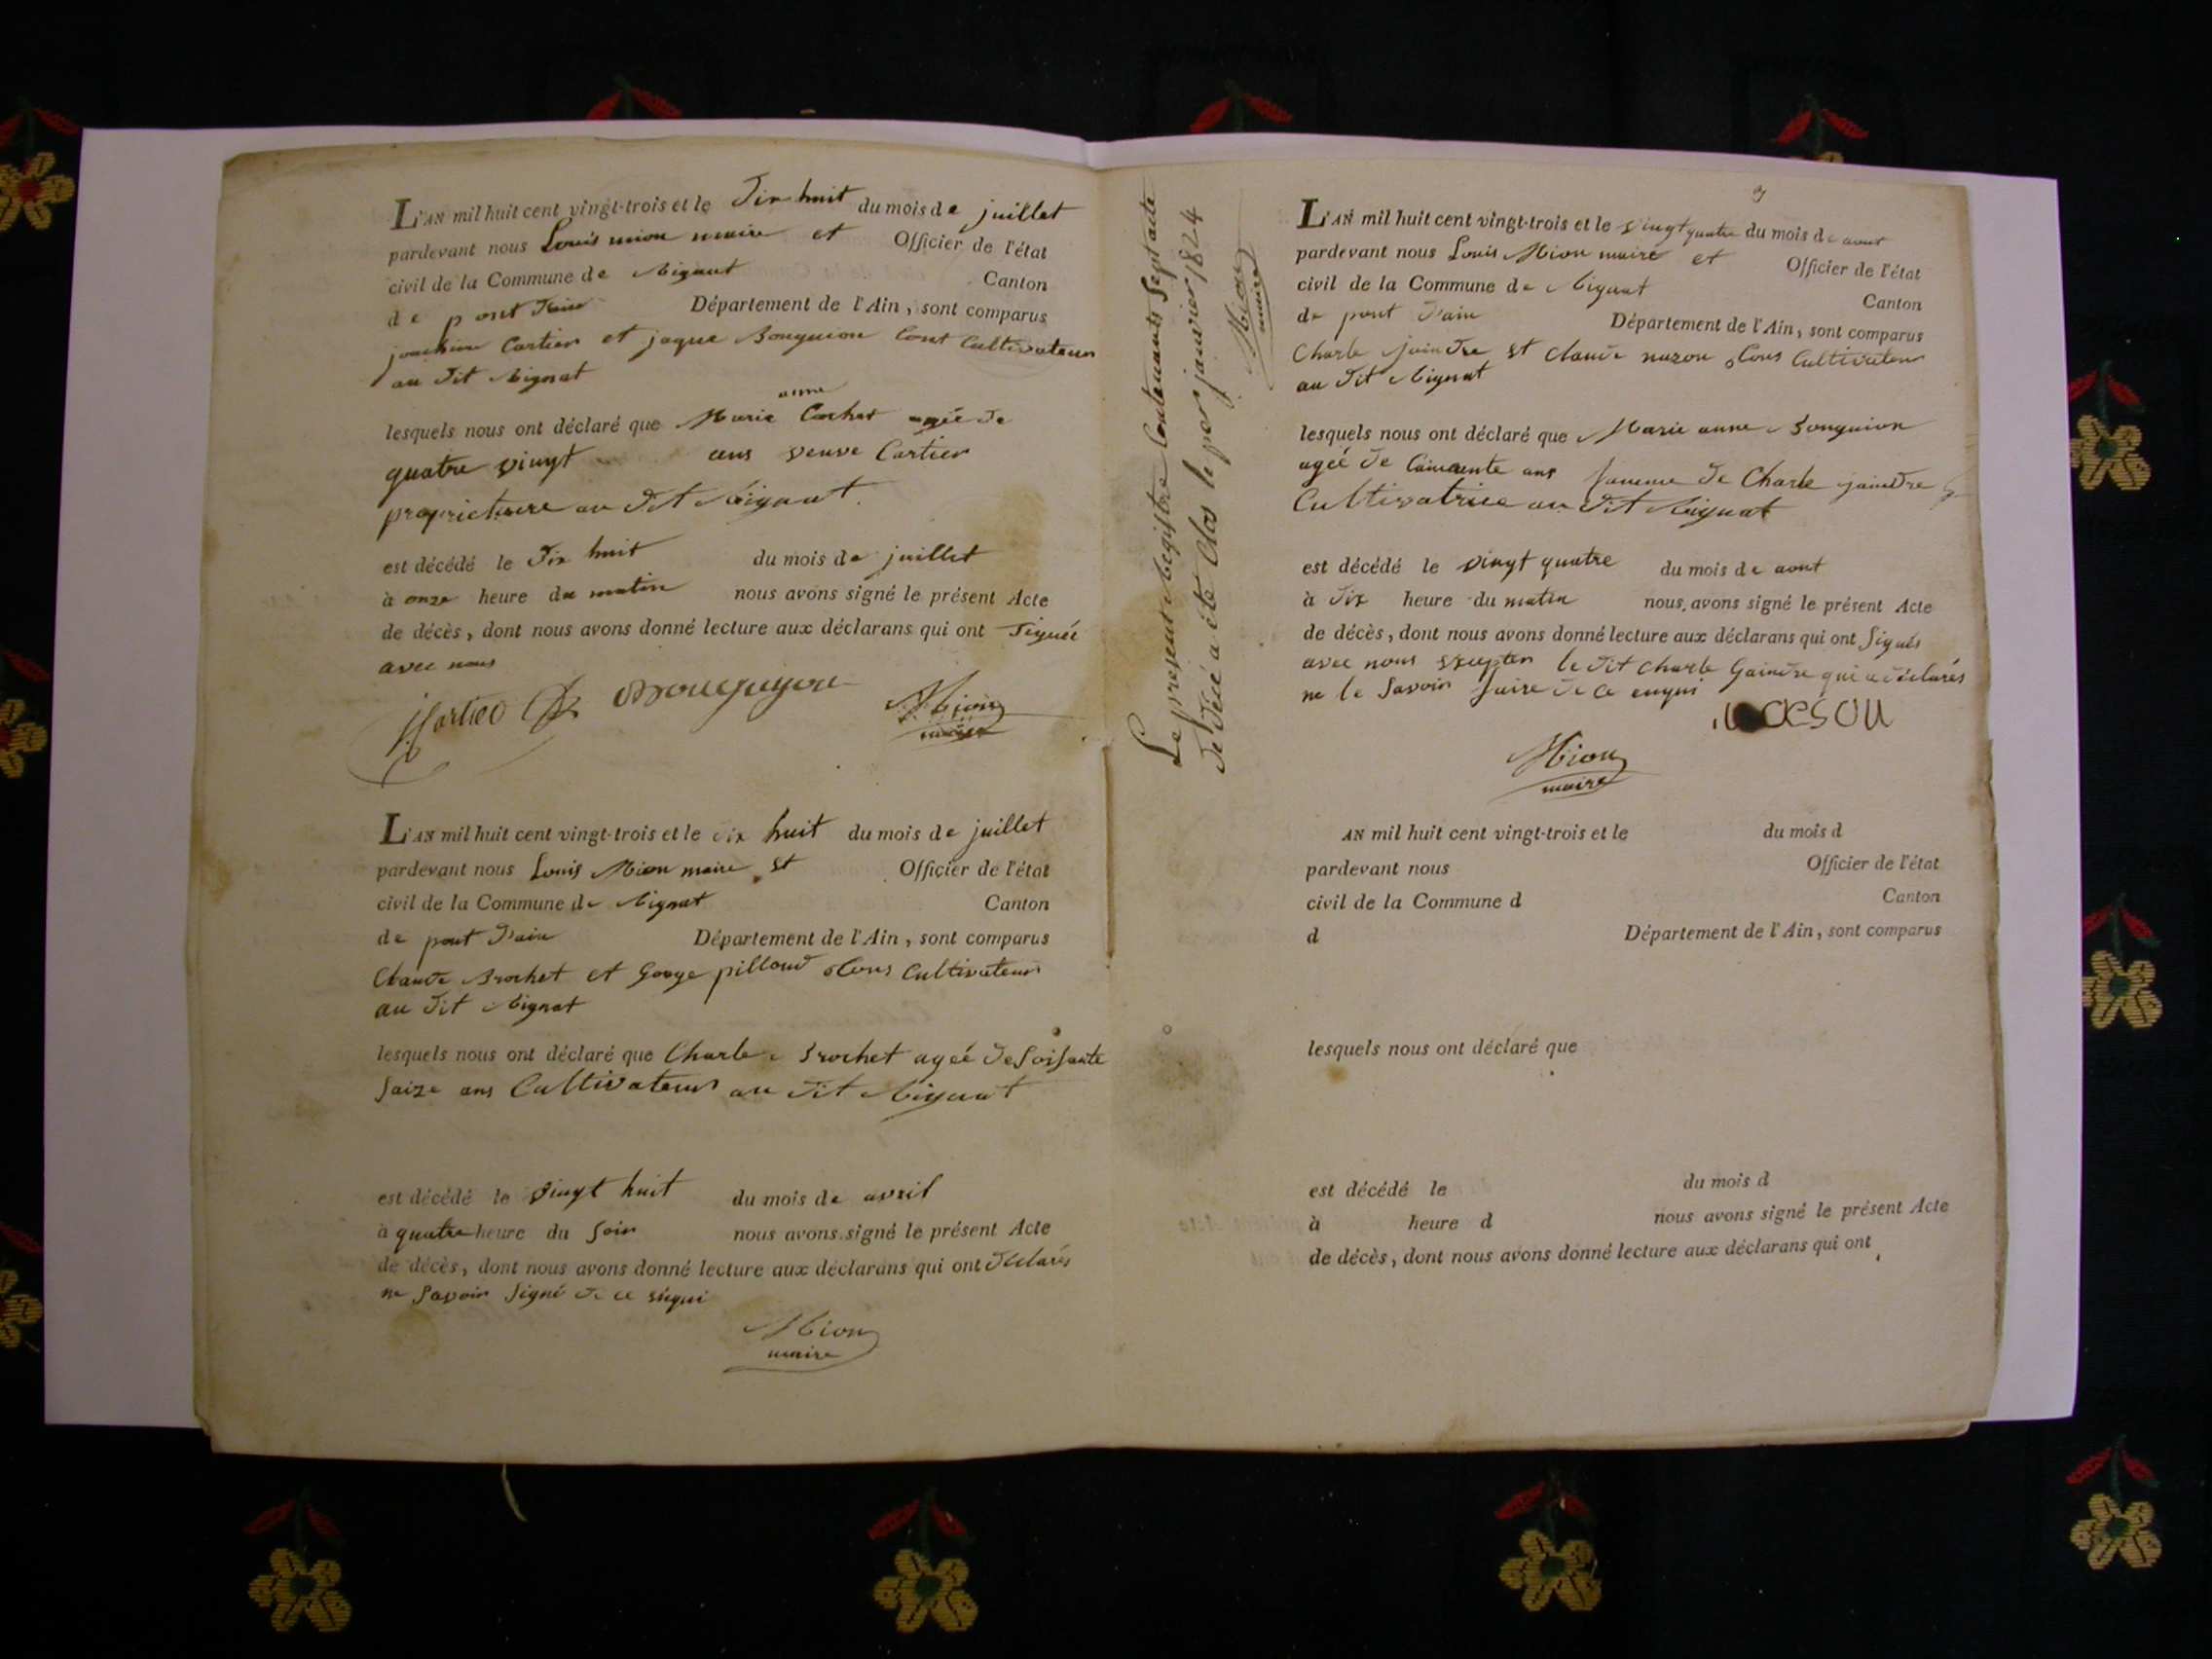 L'AN mil huit cent vingt-trois et le Dix huit du mois de juillet
pardevant nous Louis mion maire et Officier de l'état
civil de la Commune de Rignat Canton
de pont Dain Département de l'Ain, sont comparus
joachim Cartier et jaque Bouguion tout Cultivateur
au Dit Rignat
lesquels nous ont déclaré que Marie anne Cochet agée de
quatre vingt ans veuve Cartier
proprietaire au Dit Rignat
est décédé le Dix huit du mois de juillet
à onze heure du matin nous avons signé le présent Acte
de décès, dont nous avons donné lecture aux déclarans qui ont Signée
avec nous
Mion
maire
L'AN mil huit cent vingt-trois et le Dix huit du mois de juillet
pardevant nous Louis Mion maire et Officier de l'état
civil de la Commune de Rignat Canton
de pont Dain Département de l'Ain, sont comparus
Claude Brochet et Gorge pilloud tous Cultivateur
au Dit Rignat
lesquels nous ont déclaré que Charle Brochet ageé de soissante
saize ans Cultivateur au Dit Rignat
est décédé le vingt huit du mois de avril
à quatre heure du soir nous avons signé le présent Acte
de décès, dont nous avons donné lecture aux déclarans qui ont déclarés
ne savoir signé de ce enqui
Mion
maire
Le present Registre Contenants Sept acte
de Décé a été Clos le per janvier 1824
Mion
maire
L'AN mil huit cent vingt-trois et le vingt quatre du mois de aout
pardevant nous Louis Mion maire et Officier de l'état
civil de la Commune de Rignat Canton
de pont Dain Département de l'Ain, sont comparus
Charle jaindre et Claude tous Cultivateur
au Dit Rignat
lesquels nous ont déclaré que Marie anne Bouguion
ageé de Cincante ans famme de Charle jaindre
Cultivatrice au Dit Rignat
est décédé le vingt quatre du mois de aout
à Dix heure du matin nous avons signé le présent Acte
de décès, dont nous avons donné lecture aux déclarans qui ont signés
avec nous le dit Charle Gaindre qui a déclarés
ne le savoir faire de ce enqui
Mion
maire
AN mil huit cent vingt-trois et le du mois d
pardevant nous Officier de l'état
civil de la Commune d Canton
d Département de l'Ain, sont comparus
lesquels nous ont déclaré que
est décédé le du mois d
à heure d nous avons signé le présent Acte
de décès, dont nous avons donné lecture aux déclarans qui ont